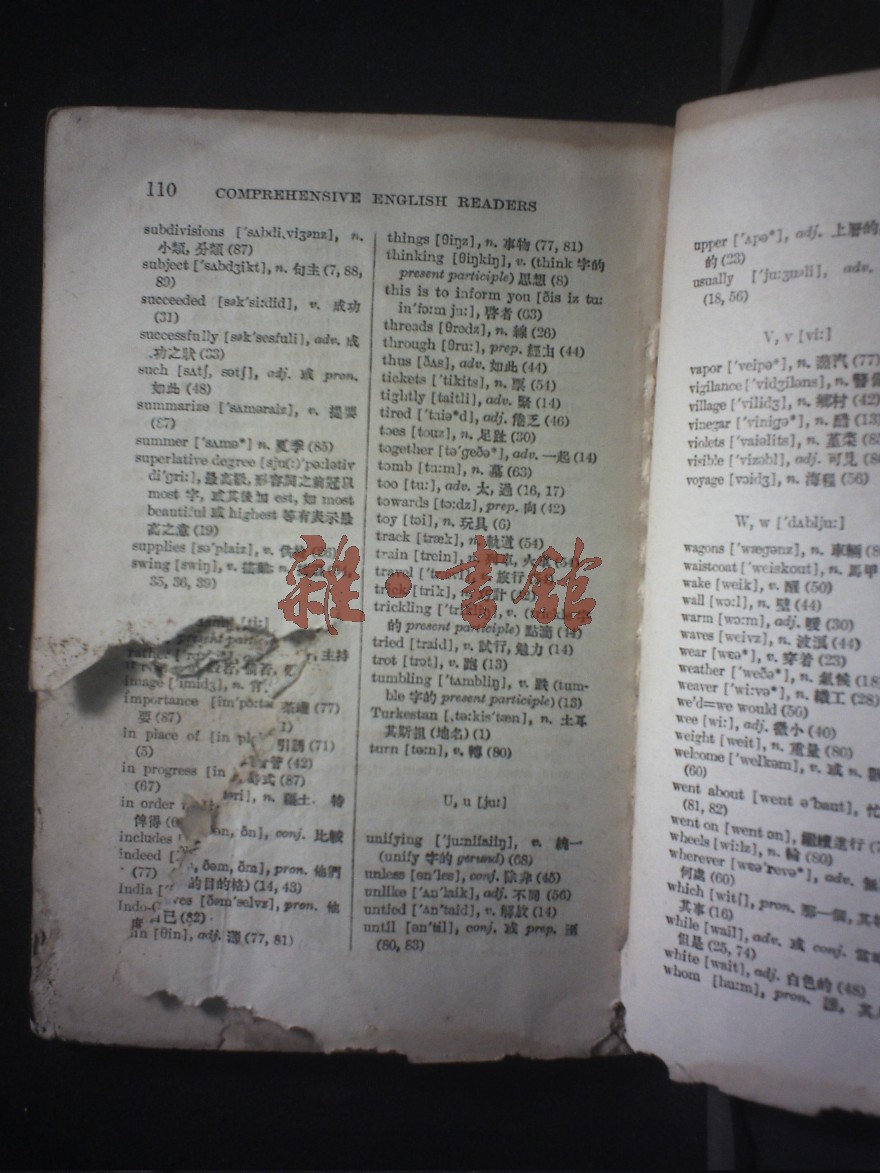 110 COMPREHENSIVE ENGLISH READERS
subdivisions ['sʌbdi,viʒənz], n.
小類, 分類 (87)
subject ['sʌbdʒikt], n. 句主 (7, 88,
89)
succeeded [sək'si:did], v. 成功
(31)
successfully [sək'sesfuli], adv. 成
功之狀 (33)
such [sʌtʃ, sətʃ], adj. 或 pron.
如此 (48)
summarize ['sʌməraiz], v. 提要
(87)
summer ['sʌmə*] n. 夏季 (85)
superlative degree [sju(:)'pə:lətiv
di'gri:], 最高級, 形容詞之前冠以
most 字, 或其後加 est, 如 most
beautiful 或 highest 等有表示最
高之意 (19)
supplies [sə'plaiz], v.
swing [swiŋ], v.
35, 36, 39)
主持
image ['imidʒ], n.
importance [im'pɔ:tə 茶
(77)
要 (87)
1)
In place of [in 引誘 (71)
(5) 管 (42)
in progress [in 式 (87)
(67)
in order n. 疆土. 特
俾得
includes ən, ðn], conj. 比較
indeed
(77) ðəm, ðm], pron. 他們
的目的格) (14, 43)
India [
es [ðəm'selvz], pron. 他
Indo-C
度 己 (82)
in [θin], adj. 薄 (77, 81)
things [θiŋz], n. 事物 (77, 81)
thinking [θiŋkiŋ], v. (think 字的
present participle) 思想 (8)
this is to inform you [ðis iz tu:
in'fɔ:m ju:], 啓者 (63)
threads [θredz], n. 線 (26)
through [θru:], prep. 經由 (44)
thus [ðʌs], adv. 如此 (44)
tickets ['tikits], n. 票 (54)
tightly [taitli], adv. 緊 (14)
tired ['taiə*d], adj. 倦乏 (46)
toes [touz], n. 足趾 (30)
together [tə'geðə*], adv. 一起 (14)
tomb [tu:m], n. 墓 (63)
too [tu:], adv. 太, 過 (16, 17)
towards [tɔ:dz], prep. 向 (42)
toy [tɔi], n. 玩具 (6)
track [træk], n. 軌道 (54)
train [trein], n. 列車, 火車 (54)
travel ['trævl], v. 旅行
trick [trik], n. 計
trickling ['trikliŋ], v. (trickle 字
的 present participle) 點滴 (14)
tried [traid], v. 試行, 勉力 (14)
trot [trɔt], v. 跑 (13)
tumbling ['tʌmbliŋ], v. 跌 (tum-
ble 字的 present participle) (13)
Turkestan [,tə:kis'tæn], n. 土耳
其斯坦 (地名) (1)
turn [tə:n], v. 轉 (80)
U, u [ju:]
unifying ['ju:nifaiiŋ], v. 統一
(unify 字的 gerund) (68)
unless [ən'les], conj. 除非 (45)
unlike ['ʌn'laik], adj. 不同 (56)
untied ['ʌn'taid], v. 解放 (14)
until [ən'til], conj. 或 prep. 至
(80, 83)
upper ['ʌpə*], adj. 上層的
的 (23)
usually ['ju:ʒuəli], adv.
(18, 56)
V, v [vi:]
vapor ['veipə*], n. 蒸汽 (77)
vigilance ['vidʒiləns], n. 警
village ['vilidʒ], n. 鄉村 (42)
vinegar ['vinigə*], n. 醋 (13
violets ['vaiəlits], n. 菫菜 (8
visible ['vizəbl], adj. 可見 (8
voyage [vɔidʒ], n. 海程 (56)
W, w ['dʌblju:]
wagons ['wægənz], n. 車輛 (8
waistcoat ['weiskout], n. 馬甲
wake [weik], v. 醒 (50)
wall [wɔ:l], n. 壁 (44)
warm [wɔ:m], adj. 暖 (30)
waves [weivz], n. 波浪 (44)
wear [wɛə*], v. 穿着 (23)
weather ['weðə*], n. 氣候 (18
weaver ['wi:və*], n. 織工 (28)
we'd=we would (50)
wee [wi:], adj. 微小 (40)
weight [weit], n. 重量 (80)
welcome ['welkəm], v. 或 n.
(60)
went about [went ə'baut], 忙
(81, 82)
went on [went ɔn], 繼續進行 (7
wheels [wi:lz], n. 輪 (80)
wherever [wɛə'revə*], adv. 無
何處 (60)
which [witʃ], pron. 那一個, 其
其事 (16)
while [wail], adv. 或 conj. 當
但是 (25, 74)
white [wait], adj. 白色的 (48)
whom [hu:m], pron. 誰, 其
雜·書館